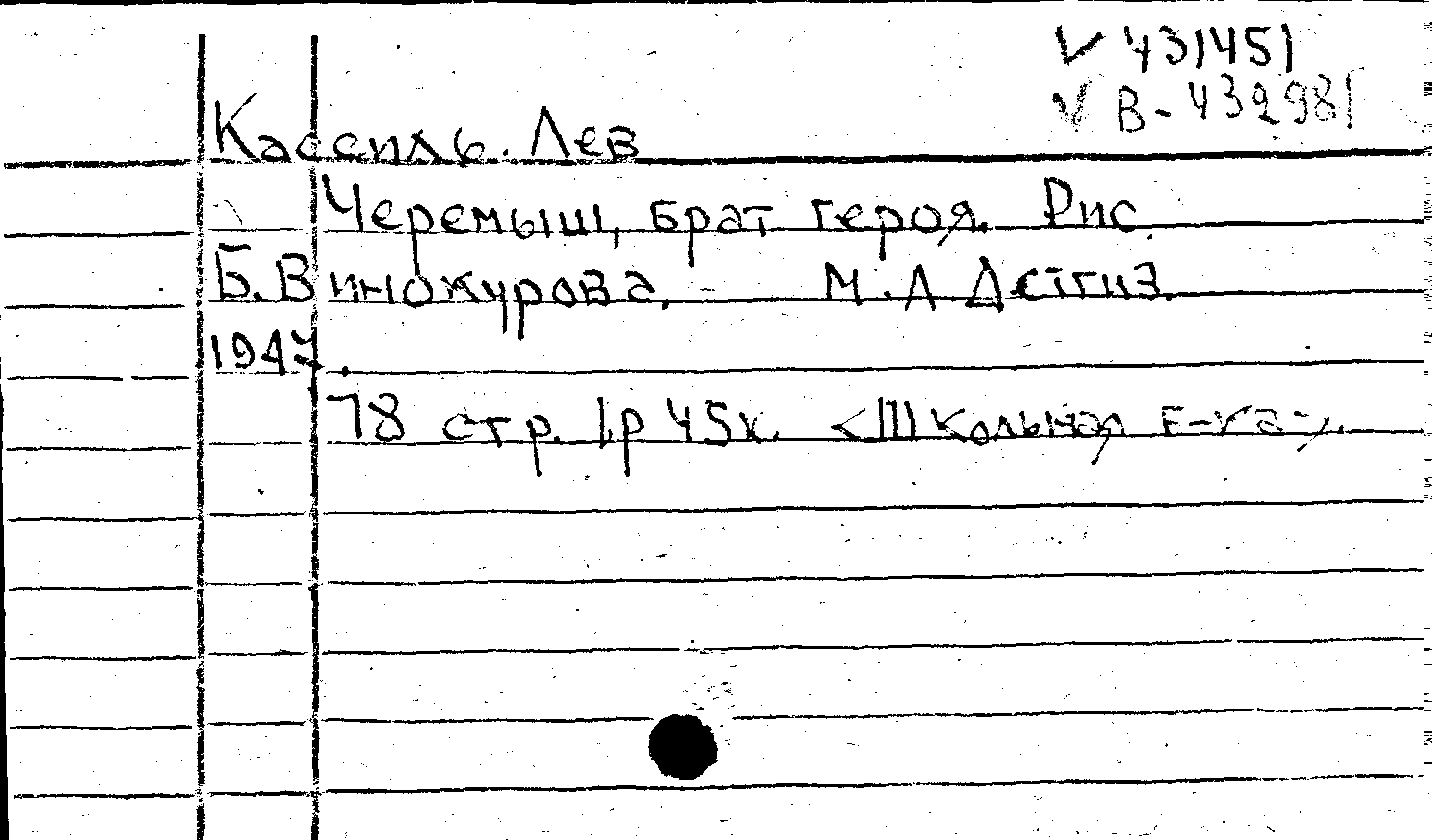 √ 431451
√ В-432981
Кассиль. Лев
Черемыш, брат героя. Рис.
Б. Винокурова. - М.Л Детгиз.
1947.
78 стр. 1р 45к. <Школьная б-ка>.